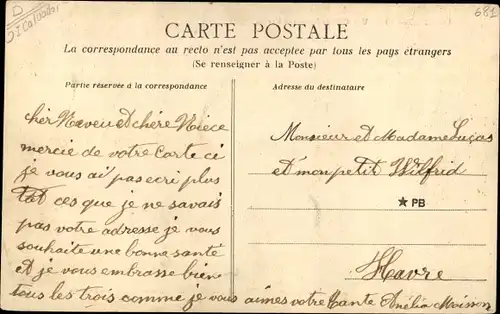 D
J. Calvados
681
CARTE POSTALE
La correspondance au recto n'est pas acceptee par tous les pays étrangers
(Se renseigner à la Poste)
Partie réservée à la correspondance
Adresse du destinataire
cher Neveu et chère Niece
mercie de votre Carte ci
je vous ai pas ecri plus
tat ces que je ne savais
pas votre adresse je vous
souhaite une bonne santé
et je vous embrasse bien
tous les trois comme je vous aimes votre tante Anélia Moisson
Monsieur et Madame Luças
et mon petit Wilfrid
★ PB
Havre